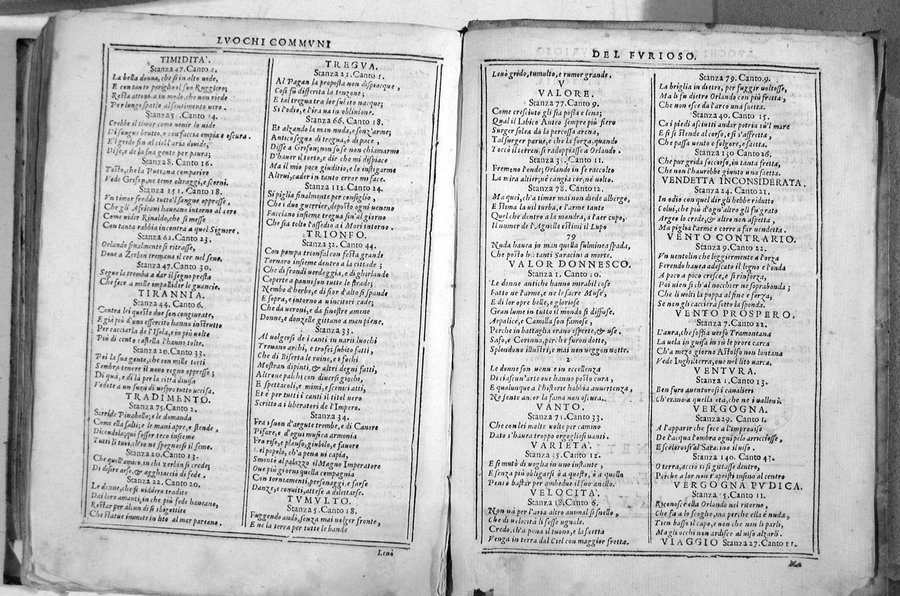 LVOCHI COMMVNI
TIMIDITA'.
Stanza 47. Canto 2.
La bella donna, che sì in alto vede,
E con tanto periglio il suo Ruggiero;
Resta attonita in modo, che non riede
Per lungo spatio al sentimento vero.
Canto 14.
Crebbe il timor come venir lo vide
Di sangue brutto, e con faccia empia e oscura.
E'l grido fin al ciel l'aria divide,
Di se, e de la sua gente per paura;
Stanza 8. Canto 16.
Tosto, che la Puttana comparire
Vede Grifon, ne teme oltraggi, e scorni.
Stanza 151. Canto 18.
Vn timor freddo tutto'l sangue oppresse,
Che gli Africani haveano intorno al core
Come vider Rinaldo, che si messe
Con tanta rabbia incontra a quel Signore.
Stanza 62. Canto 23.
Orlando finalmente si ritrasse,
Doue a Zerbin tremaua il cor nel seno.
Stanza 47. Canto 30.
Segue la tromba a dar il segno presta
Che fece a mille impallidir le guancie.
TIRANNIA.
Stanza 44. Canto 6.
Contra lei queste due son congiurate,
E già più d'uno essercito hanno instrutto
Per cacciarla de l'Isola, e in più volte
Più di cento castella l'hanno tolte.
Stanza 20. Canto 33.
Poi la sua gente, che con mille torti
Sembra tenere il nouo regno oppresso;
Di quà, e di là per la città diuisa
Vedete a un suon di vespro tutto uccisa.
TRADIMENTO.
Stanza 75. Canto 2.
Sorride Pinabello; e le domanda
Come ella salti; le mani apre, e stende,
Dicendole; qui fosser teco insieme
Tutti li tuoi, ch'io ne spegnersi il seme.
Stanza 20. Canto 13.
Che quell'amor, in che Zerbin si crede;
Di disire arse, & agghiacciò di fede.
Stanza 22. Canto 20.
Le donne, che si viddero tradite
Dai loro amanti, in che più fede haueano,
Restar per alcun dì sì sbigottite
Che statue immote in lito al mar pareano.
TREGVA.
Stanza 21. Canto 1.
Al Pagan la proposta non dispiacque,
Così fu differita la tenzone;
E tal tregua tra lor subito nacque;
Sì l'odio, e l'ira va in obliuione.
Stanza 66. Canto 18.
Et alzando la man nuda, e senz'arme;
Antico segno di tregua, ò di pace
Disse a Grifon; non so se non chiamarmo
D'hauer il torto, e dir che mi dispiace
Ma il mio poco giuditio, e lo instigarmo
Altrui, cader in tanto error mi face.
Stanza 112. Canto 24.
Si piglia finalmente per consiglio,
Che i duo guerrier, deposto ogni ueneno
Facciano insieme tregua fin'al giorno
Che sia tolto l'assedio ai Mori intorno.
TRIONFO.
Stanza 32. Canto 44.
Con pompa trionfal con festa grande
Tornaro insieme dentro a la cittade;
Che di frondi uerdeggia, e di ghirlande
Coperte a panni son tutte le strade;
Nembo d'herbe, e di fior d'alto si spande
E sopra, e intorno a uincitori cade;
Che da ueroni, e da finestre amene
Donne, e donzelle gittano a man piene.
Stanza 33.
Al uolgersi de i canti in uarii luochi
Trouano archi, e trofei subito fatti,
Che di Biserta le ruine, e i fochi
Mostran dipinti, & altri degni fatti,
Altroue palchi con diuersi giochi,
E spettacoli, e mimi, e scenici atti,
Et è per tutti i canti il titol uero
Scritto a i liberatori de l'Impero.
Stanza 34.
Fra il suon d'argute trombe, e di Canore
Pifare, e d'ogni musica armonia
Fra riso, e plauso, giubilo, e fauore
Del popolo, ch'a pena ui capia,
Smontò al palazzo il Magno Imperatore
Oue più giorni quella compagnia
Con torniamenti, personaggi, e farse
Danze, e conuiti, attese a dilettarse.
TVMVLTO.
Stanza 5. Canto 18.
Fuggendo andò, senza mai volger fronte,
E ne la terra per tutte le bande
Leuò
DEL FVRIOSO.
Leuò grido, tumulto, e rumor grande.
V
VALORE.
Stanza 77. Canto 9.
Come cresciuto gli sia possa e lena;
Qual il Libico Anteo sempre più fiero
Surger solea da la percossa arena,
Tal surger parue, e che la forza, quando
Toccò il terren, si radoppiasse a Orlando.
Canto 11.
Fremono l'onde; Orlando in se raccolto
La mira altier; nè cangia cor, nè volto.
Stanza 78. Canto 12.
Ma quei, ch'a timor mai non diede albergo,
E stima la vil turba, e l'arme tante
Quel che dentro a la mandra, a l'aer cupo,
Il numer de l'Agnelle estimi il Lupo
79
Nuda hauea in man quella fulminea spada,
Che posto hà tanti Saracini a morte.
VALOR DONNESCO.
Stanza 1. Canto 20.
Le donne antiche hanno mirabil cose
Fatto ne l'arme, e ne le sacre Muse,
E di lor opre belle, e gloriose
Gran lume in tutto il mondo si diffuse.
Arpalice, e Camilla son famose,
Perche in battaglia erano esperte, & use.
Safo, e Corinna, perche furon dotte,
Splendono illustri, e mai non veggon notte.
2
Le donne son uenute in eccellenza
Di ciascun'arte oue hanno posto cura,
E qualunque a l'historie habbia auuertenza,
Ne sente ancor la fama non oscura.
VANTO.
Stanza 71. Canto 33.
Che con lei molte uolte per camino
Dato s'hauea troppo orgogliosi uanti.
VARIETA'.
Stanza 35. Canto 12.
E sì mutò di voglia in uno instante,
E senza più obligarsi ò a questo, ò a quello
Pensò bastar per ambedue il suo anello.
VELOCITA'.
Stanza 18. Canto 6.
Non uà per l'aria altro animal sì snello,
Che di velocità li fosse uguale.
Credo, ch'a pena il tuono, e la saetta
Venga in terra dal Ciel con maggior fretta.
Stanza 79. Canto 9.
La briglia in dietro, per fuggir woltosse,
Ma li fu dietro Orlando con più fretta;
Che non esce da l'arco una saetta.
Stanza 40. Canto 15.
Co i piedi asciutti andar potria sù'l mare
E sì si stende al corso, e sì s'affretta;
Che passa vento e folgore, e saetta.
Stanza 130 Canto 26.
Che pur grida soccorso, in tanta fretta,
Che non l'haurebbe giunto una saetta.
VENDETTA INCONSIDERATA.
Stanza 24. Canto 21.
In odio con quel dir gli hebbe ridutto
Colui, che più d'ogn'altro gli fu grato
Argeo lo crede, & altro non aspetta,
Ma piglia l'arme e corre a far uendetta.
VENTO CONTRARIO.
Stanza 9. Canto 22.
Vn uentolin che leggiermente a l'orza
Ferendo hauea adescato il legno e l'onda
A poco a poco cresce, e si rinforza,
Poi vien sì ch'al nocchier ne soprabonda;
Che li volti la poppa al fine e forza,
Se non gli caccierà sotto la sponda.
VENTO PROSPERO.
Stanza 7. Canto 22.
L'aura, che soffia uerso Tramontana
La uela in guisa in sù le prore carca
Ch'a mezo giorno Astolfo non lontana
Vede Inghilterra, oue nel lito uarca.
VENTVRA.
Stanza 1. Canto 13.
Ben furo auenturosi i caualieri
Ch'erano a quella età, che ne i ualloni.
VERGOGNA.
Stanza 29. Canto 1.
A l'apparir che fece a l'improuiso
De l'acqua l'ombra ogni pelo arricciosse,
E scolorossi al Saracino il uiso.
Stanza 140. Canto 43.
O terra, acciò ti si gittasse dentro,
Perche a lor non t'apristi insino al centro
VERGOGNA PVDICA.
Canto 11.
Riconosce ella Orlando nel ritorno,
Che fa a lo scoglio, ma perche ella è nuda,
Tien basso il capo, e non che non li parli,
Ma gli occhi non ardisce al uiso alzarli.
VIAGGIO Stanza 27. Canto 11.